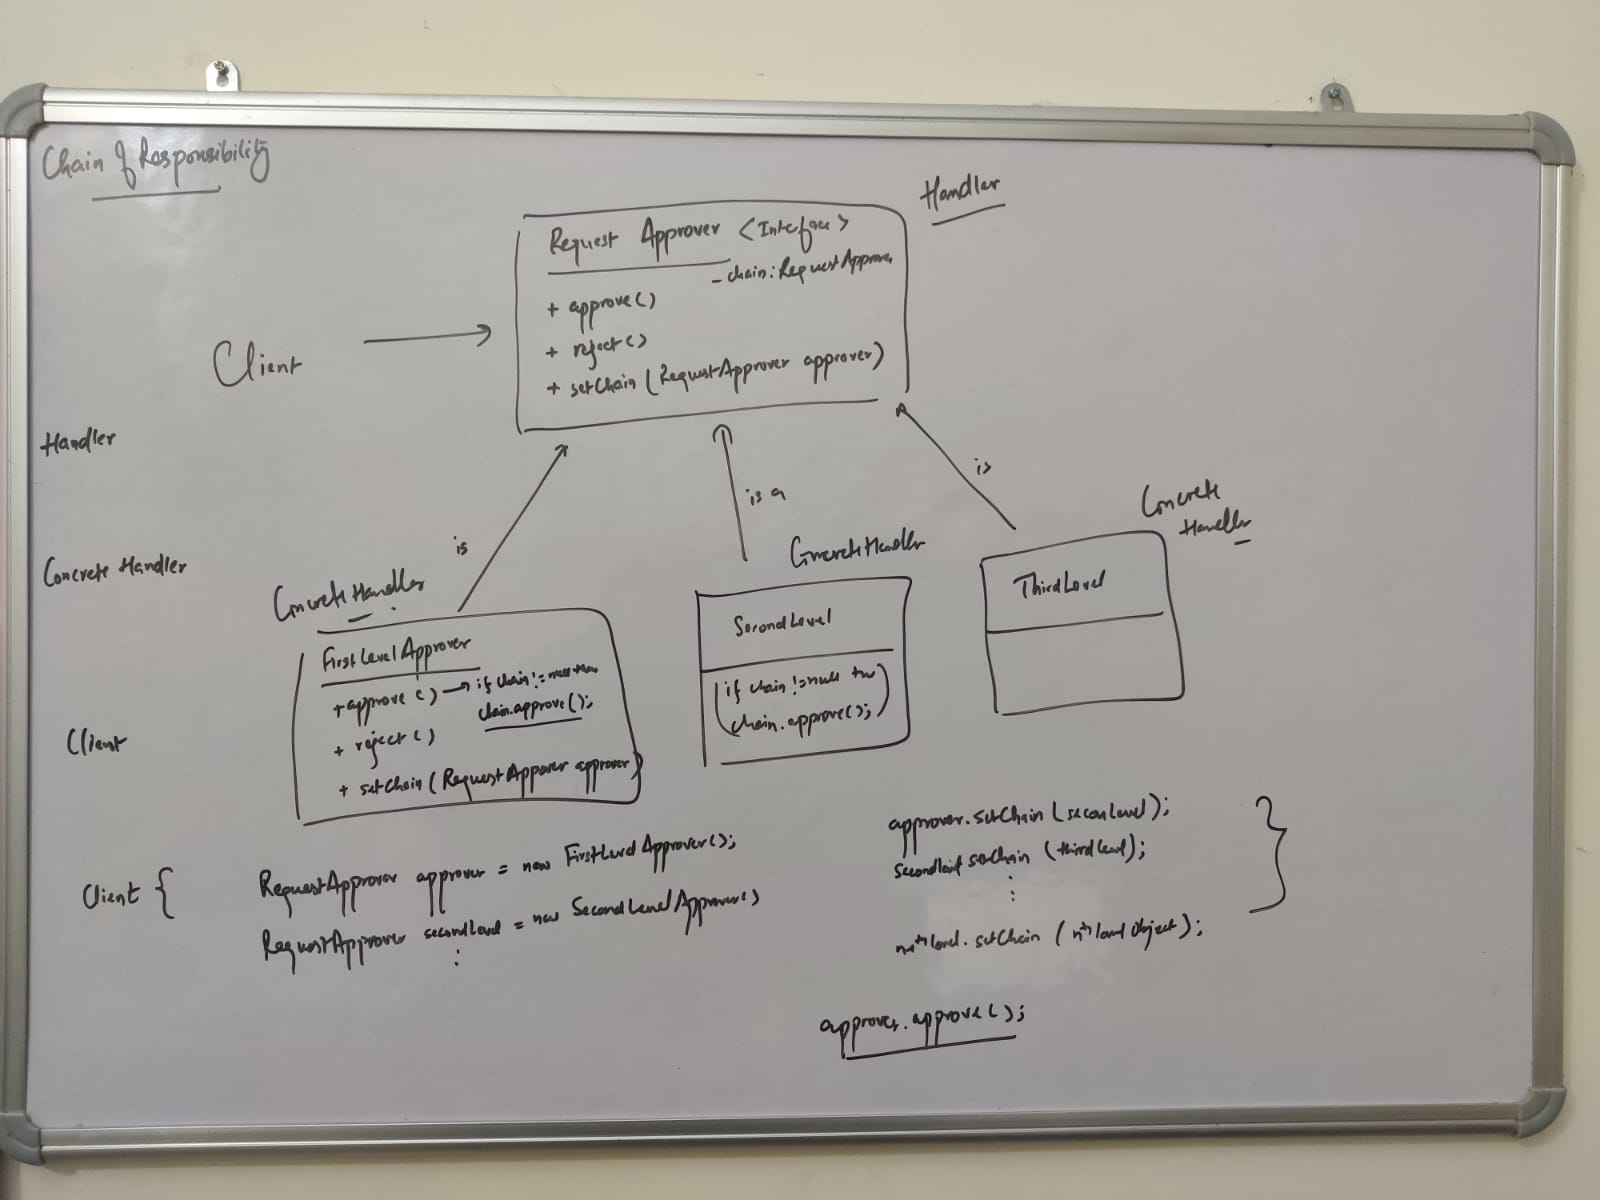 Chain of Responsibility
Handler
Request Approver <Interface>
- chain: RequestApprover
+ approve()
+ reject()
+ setChain (RequestApprover approver)
Client
Handler
is
is a
is
Concrete
Handler
Concrete Handler
Concrete Handler
Concrete Handler
FirstLevelApprover
+ approve() → if chain != null then
chain.approve();
+ reject()
+ setChain (RequestApprover approver)
SecondLevel
(if chain != null then
chain.approve();)
ThirdLevel
Client
Client {
RequestApprover approver = new FirstLevelApprover();
RequestApprover secondLevel = new SecondLevelApprover()
:
approver.setChain (seconLevel);
secondLevel setChain (thirdLevel);
:
level. setChain (nth level Object);
}
approver.approve();